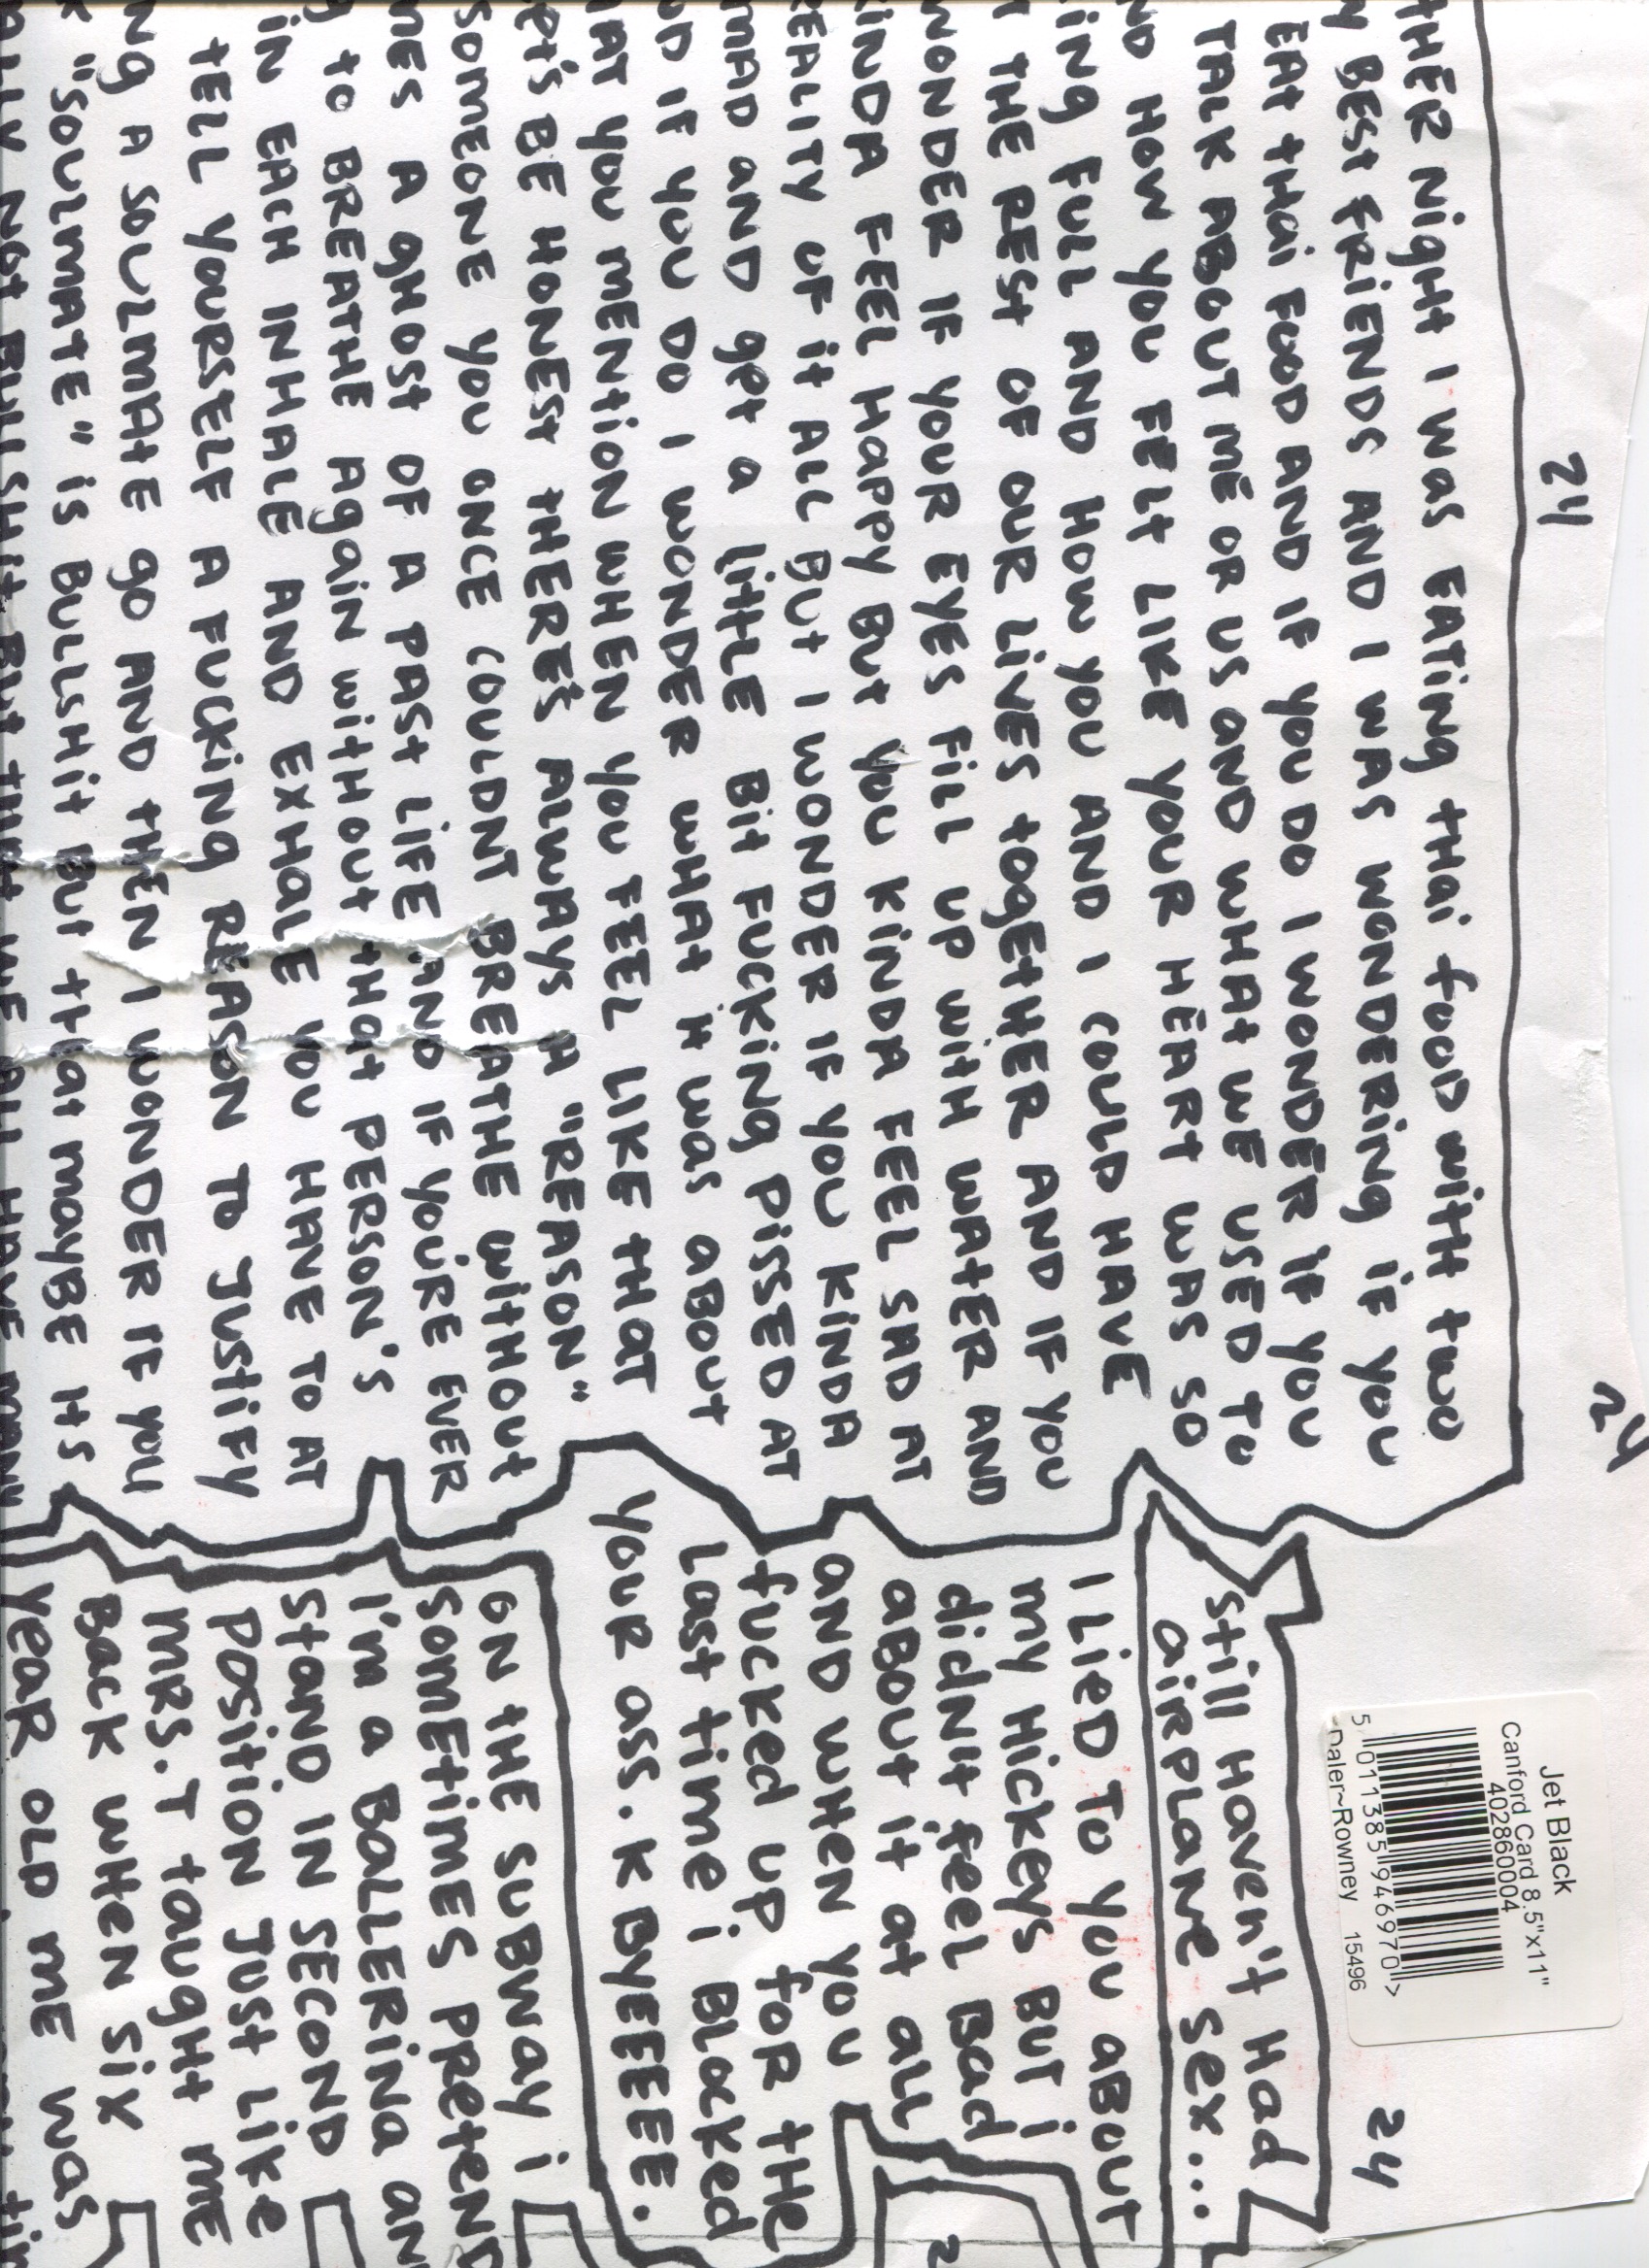 24
24
24
THER NIGHT I WAS EATING THAI FOOD WITH TWO
Y BEST FRIENDS AND I WAS WONDERING IF YOU
EAT THAI FOOD AND IF YOU DO I WONDER IF YOU
TALK ABOUT ME OR US AND WHAT WE USED TO
ND HOW YOU FELT LIKE YOUR HEART WAS SO
ING FULL AND HOW YOU AND I COULD HAVE
T THE REST OF OUR LIVES TOGETHER AND IF YOU
WONDER IF YOUR EYES FILL UP WITH WATER AND
KINDA FEEL HAPPY BUT YOU KINDA FEEL SAD AT
REALITY OF IT ALL BUT I WONDER IF YOU KINDA
MAD AND GET A LITTLE BIT FUCKING PISSED AT
ND IF YOU DO I WONDER WHAT IT WAS ABOUT
HAT YOU MENTION WHEN YOU FEEL LIKE THAT
LET'S BE HONEST THERE'S ALWAYS A "REASON"
SOMEONE YOU ONCE COULDNT BREATHE WITHOUT
MES A GHOST OF A PAST LIFE AND IF YOU'RE EVER
G TO BREATHE AGAIN WITHOUT THAT PERSON'S
IN EACH INHALE AND EXHALE YOU HAVE TO AT
TELL YOURSELF A FUCKING REASON TO JUSTIFY
NG A SOULMATE GO AND THEN I WONDER IF YOU
K "SOULMATE" IS BULLSHIT BUT THAT MAYBE ITS
LLY NOT BULLSHIT BUT THAT WE ALL HAVE MANY
Jet Black
Canford Card 8.5"x11"
402860004
5 011385 946970 >
Daler~Rowney 15496
STILL HAVEN'T HAD
AIRPLANE SEX...
I LIED TO YOU ABOUT
MY HICKEYS BUT I
DIDN'T FEEL BAD
ABOUT IT AT ALL
AND WHEN YOU
FUCKED UP FOR THE
LAST TIME I BLOCKED
YOUR ASS. K BYEEEE.
ON THE SUBWAY I
SOMETIMES PRETEND
I'M A BALLERINA AN
STAND IN SECOND
POSITION JUST LIKE
MRS. T TAUGHT ME
BACK WHEN SIX
YEAR OLD ME WAS